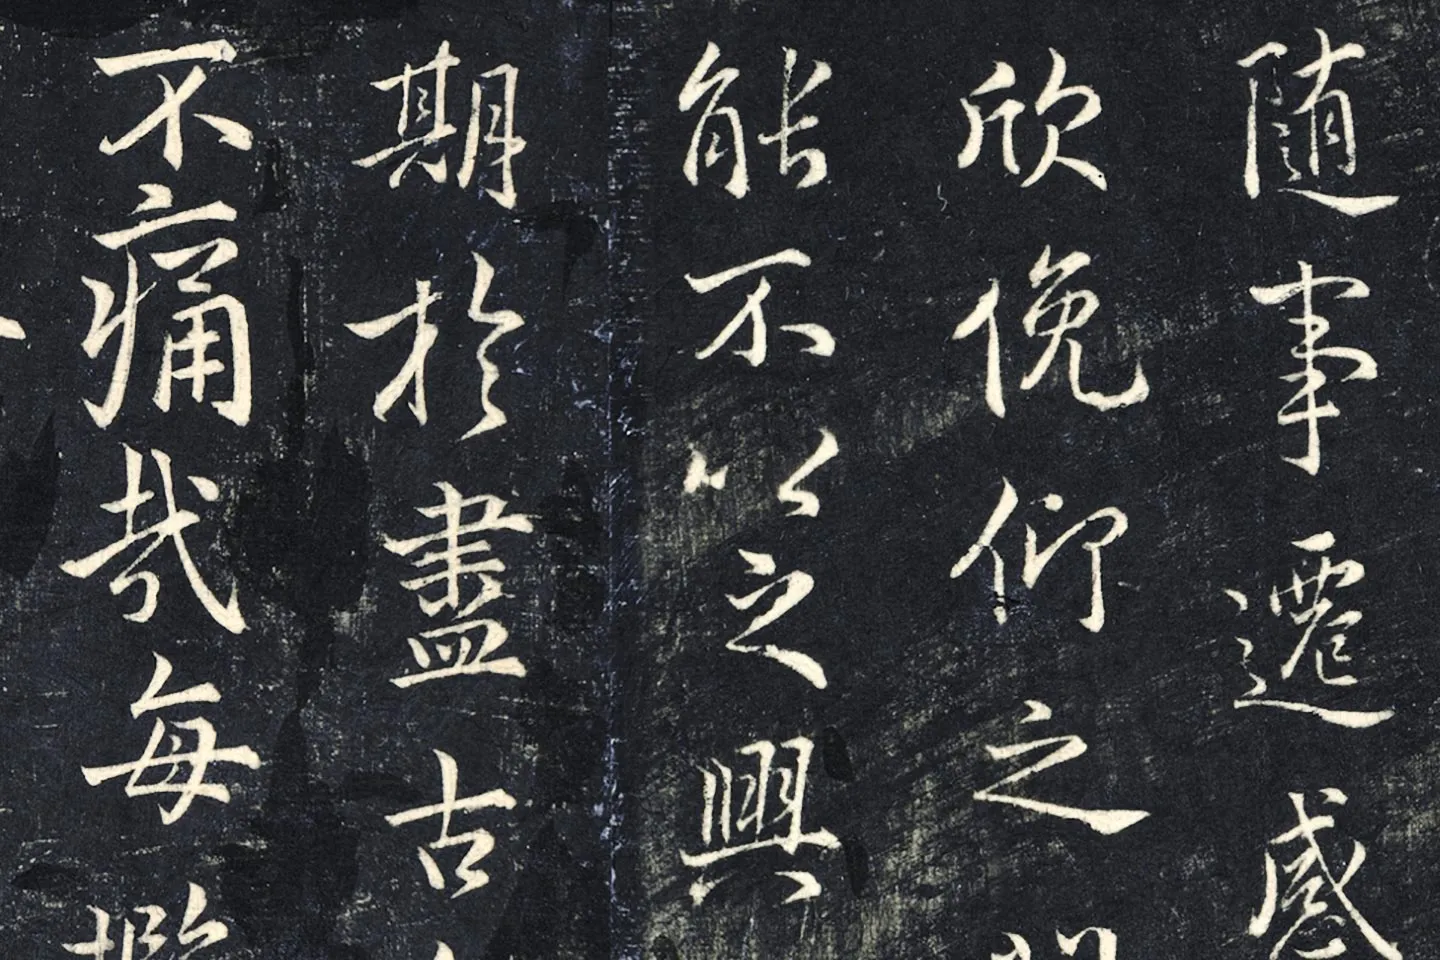 随事遷感
欣俛仰之
能不以之興
期於盡古
不痛哉每攬